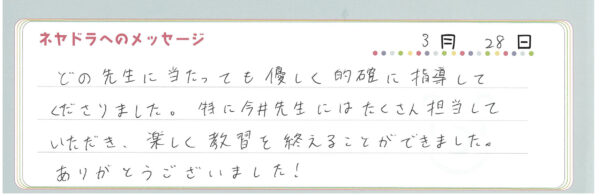 ネヤドラへのメッセージ
3月 28日
どの先生に当たっても優しく的確に指導して
くださりました。特に今井先生にはたくさん担当して
いただき、楽しく教習を終えることができました。
ありがとうございました!